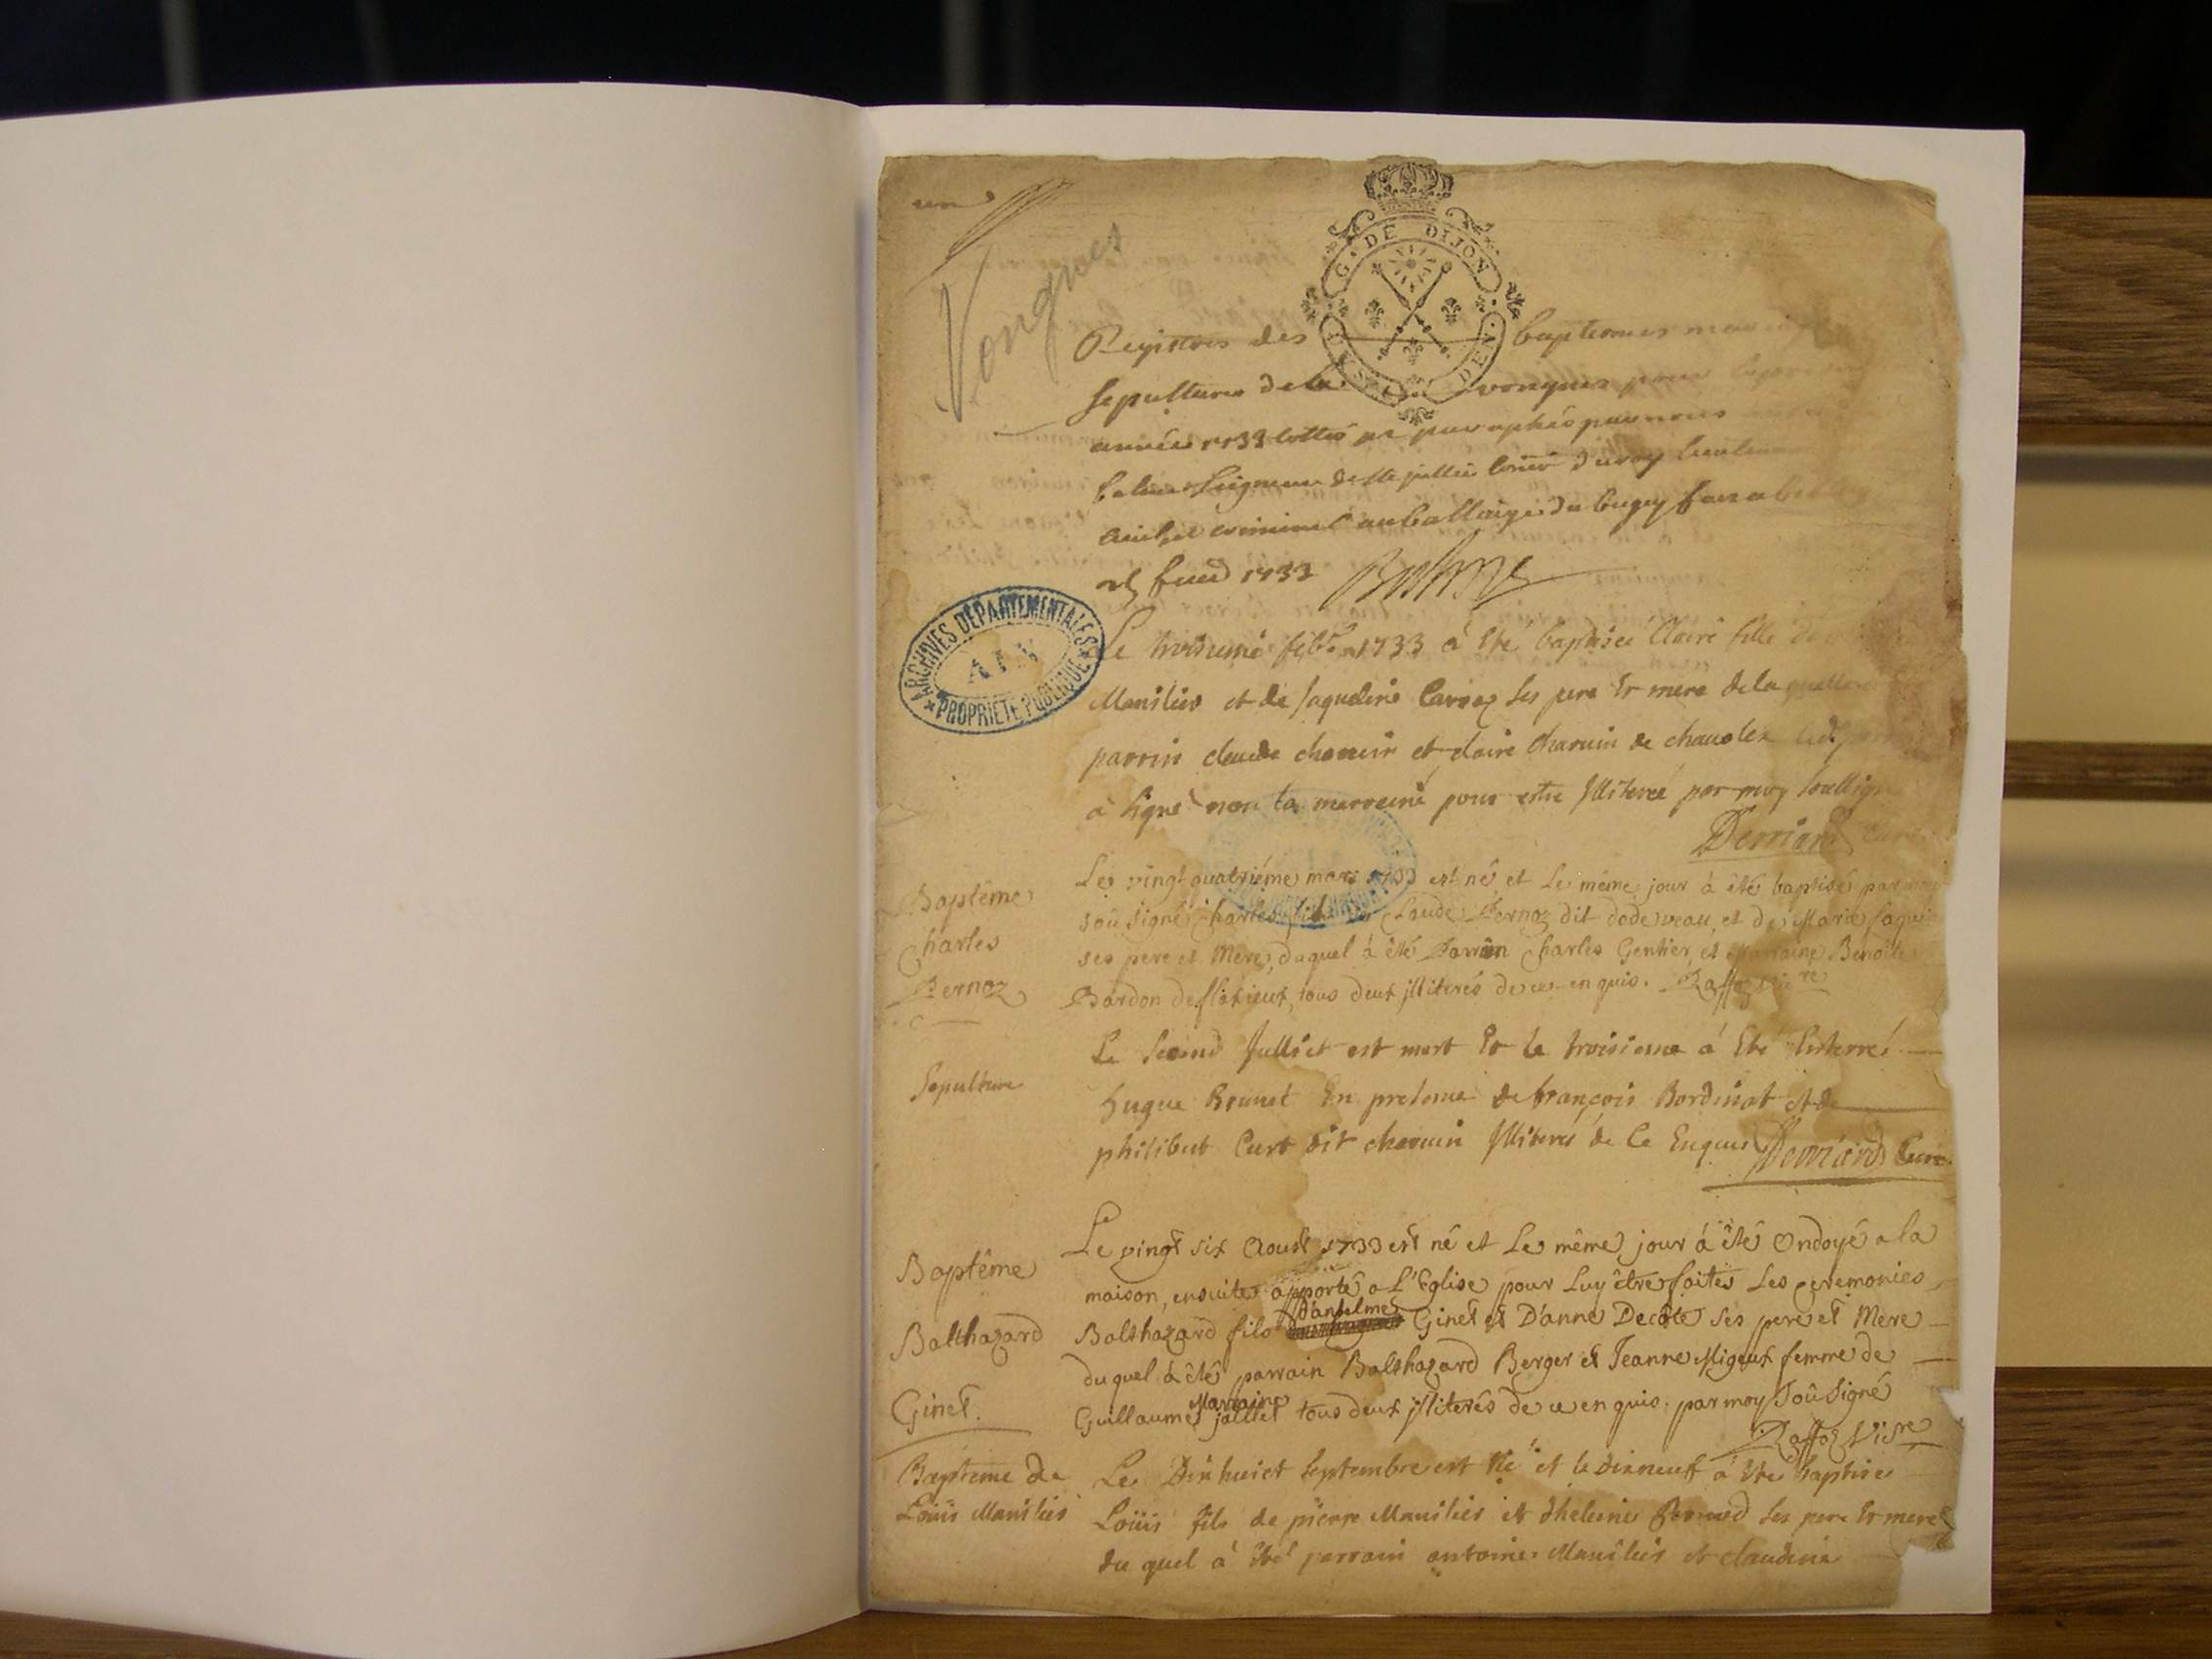 un
Vongnes
G. DE DIJON
DEN.
Registres des baptemes
sepultures de la vongnes pour
année 1733 cottés et paraphés par nous
Seigneur de Ste jullie Coner du roy
civil et criminel au balliage du bugey
1733
ARCHIVES DÉPARTEMENTALES
AIN
PROPRIÉTÉ PUBLIQUE
Le troisieme 1733 à été baptisée Claire fille
Manilier et de Jaqueline ses pere et mere de la quelle
parrin claude charuin et claire charuin de
à signé non la marreine pour estre illiterée par moy soussigné
Derriard Curé
Baptême
Charles
Pernoz
Le vingt quatriéme mars 1733 est né et Le même jour à été baptisé par moy
soûsigné Charles fils de Claude Pernoz dit dodeveau, et de Marie
ses pere et Mere, duquel à été Parrin Charles Gentier, et Marraine Benoite
Bardon de flaxieux, tous deux illiterés de ce enquis. Raffoz vicre
Sepulture
Le second Julliet est mort et le troisieme à été Enterré
hugue Brunet En presence de françois Bordinat et de
philibert Curt dit charuin Illiterés de Ce Enquis Derriard Curé
Baptême
Balthazard
Ginet.
Le vingt six Aoust 1733 est né et Le même jour à été Ondoyé a la
maison, ensuite apporté a L'Eglise pour Luy être faites Les ceremonies
Balthazard fils d'anselme Ginet et D'anne Decôte ses pere et Mere
du quel à été parrain Balthazard Berger et Jeanne Migeux femme de
Guillaume jallet Marraine tous deux illiterés de ce enquis. par moy Soûsigné
Raffoz Vicre
Baptême de
Loüis Manilier
Le Dixhuict Septembre est né et le dixneuf à été baptise
Loüis fils de pierre Manilier et ses pere et mere
du quel à été parrain antoine Manilier et claudine